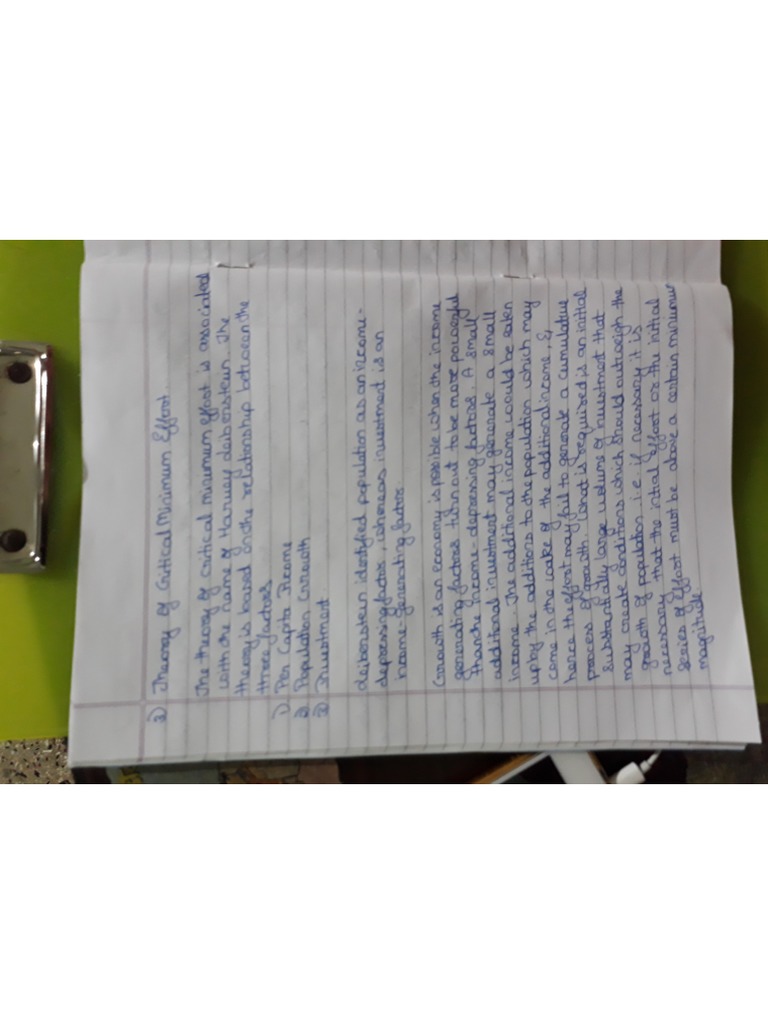 2) Theory of Critical Minimum Effort.
The theory of critical minimum effort is associated
with the name of Harvey Leibenstein. The
theory is based on the relationship between the
three factors
1) Per Capita Income
2) Population Growth
3) Investment
Leibenstein identified population as an income-
depressing factor, whereas investment is an
income-generating factor.
Growth is an economy is possible when the income
generating factors turn out to be more powerful
than the income-depressing factors. A small
additional investment may generate a small
income. The additional income would be eaten
up by the additions to the population which may
come in the wake of the additional income &
hence the effort may fail to generate a cumulative
process of growth. What is required is an initial
substantially large volume of investment that
may create conditions which should outweigh the
growth of population i.e. if necessary it is
necessary that the intial effort or the initial
series of effort must be above a certain minimum
magnitude